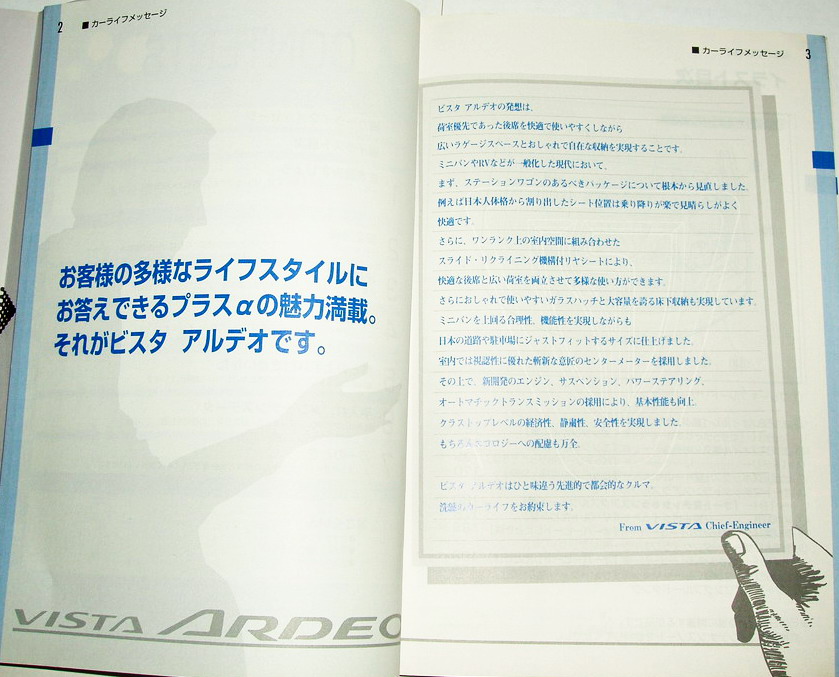 2 ■カーライフメッセージ
お客様の多様なライフスタイルに
お答えできるプラスαの魅力満載。
それがビスタ アルデオです。
VISTA ARDEO
■カーライフメッセージ 3
ビスタ アルデオの発想は、
荷室優先であった後席を快適で使いやすくしながら
広いラゲージスペースとおしゃれで自在な収納を実現することです。
ミニバンやRVなどが一般化した現代において、
まず、ステーションワゴンのあるべきパッケージについて根本から見直しました。
例えば日本人体格から割り出したシート位置は乗り降りが楽で見晴らしがよく
快適です。
さらに、ワンランク上の室内空間に組み合わせた
スライド・リクライニング機構付リヤシートにより、
快適な後席と広い荷室を両立させて多様な使い方ができます。
さらにおしゃれで使いやすいガラスハッチと大容量を誇る床下収納も実現しています。
ミニバンを上回る合理性、機能性を実現しながらも
日本の道路や駐車場にジャストフィットするサイズに仕上げました。
室内では視認性に優れた斬新な意匠のセンターメーターを採用しました。
その上で、新開発のエンジン、サスペンション、パワーステアリング、
オートマチックトランスミッションの採用により、基本性能も向上。
クラストップレベルの経済性、静粛性、安全性を実現しました。
もちろんエコロジーへの配慮も万全。
ビスタ アルデオはひと味違う先進的で都会的なクルマ。
洗練のカーライフをお約束します。
From VISTA Chief-Engineer